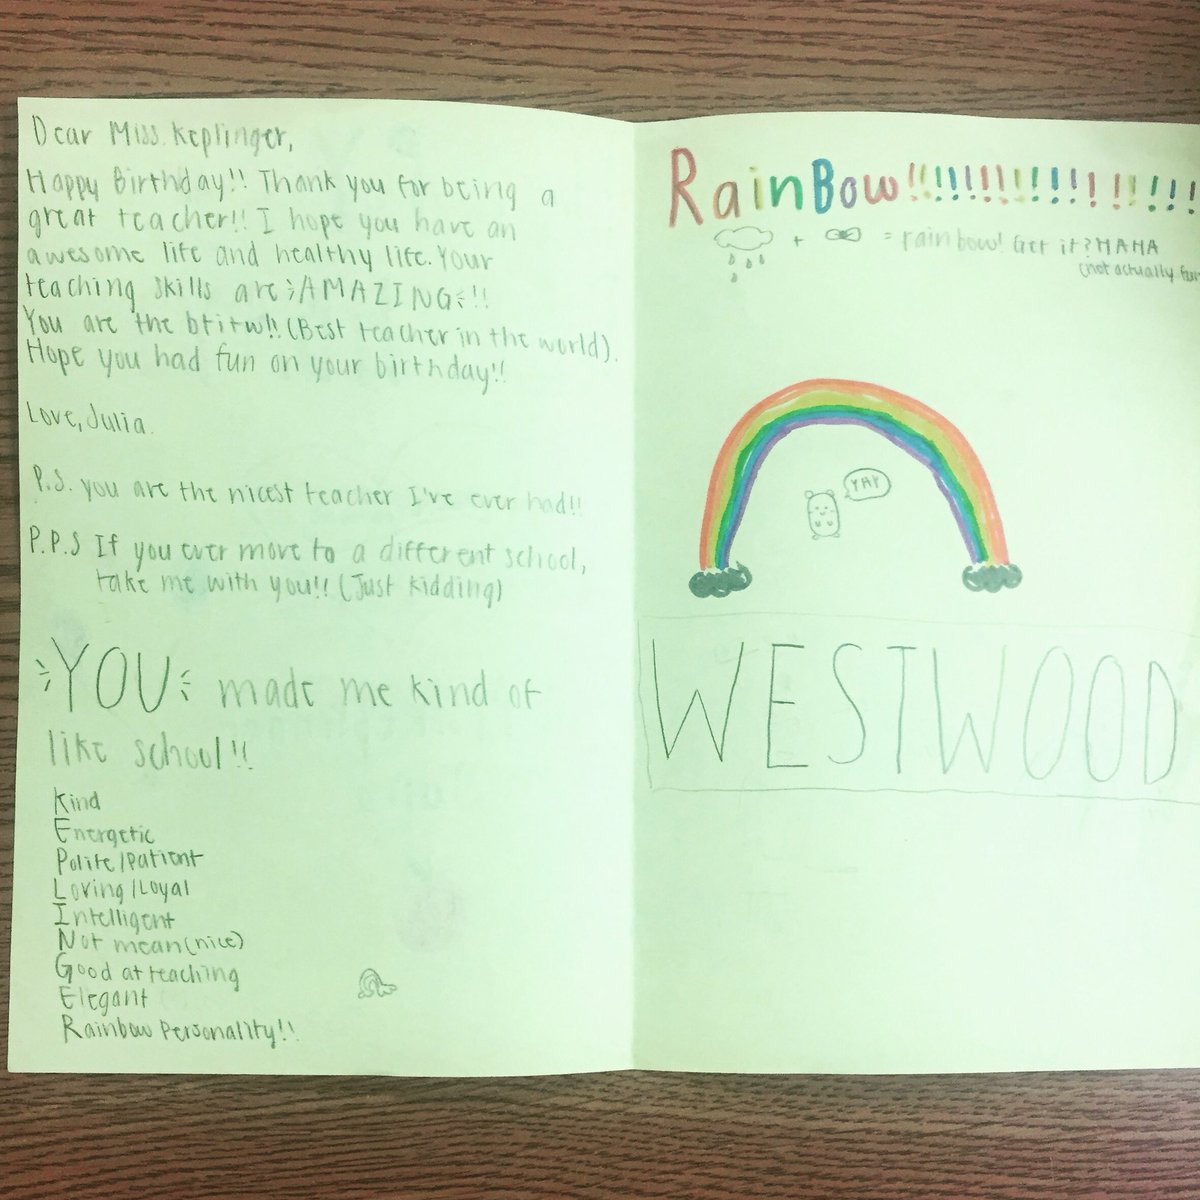 Dear Miss. Keplinger,
Happy Birthday!! Thank you for being a
great teacher!! I hope you have an
awesome life and healthy life. Your
teaching skills are AMAZING!!
You are the btitw!! (Best teacher in the world).
Hope you had fun on your birthday!!
Love, Julia.
P.S. you are the nicest teacher I've ever had!!
P.P.S If you ever move to a different school,
take me with you!! (Just kidding)
YOU made me kind of
like school!!
Kind
Energetic
Polite/patient
Loving/Loyal
Intelligent
Not mean(nice)
Good at teaching
Elegant
Rainbow Personality!!
RainBow!!!!!!!!!!!!!!!!!!!
+ = rainbow! Get it? HAHA
(not actually
YAY
WESTWOOD